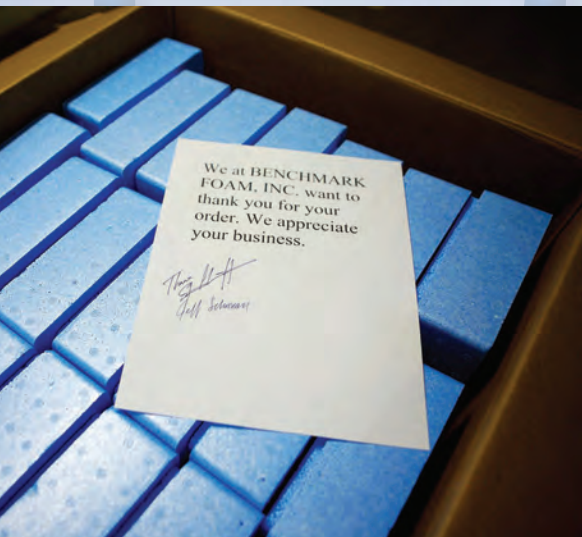 We at BENCHMARK
FOAM, INC. want to
thank you for your
order. We appreciate
your business.
Jeff